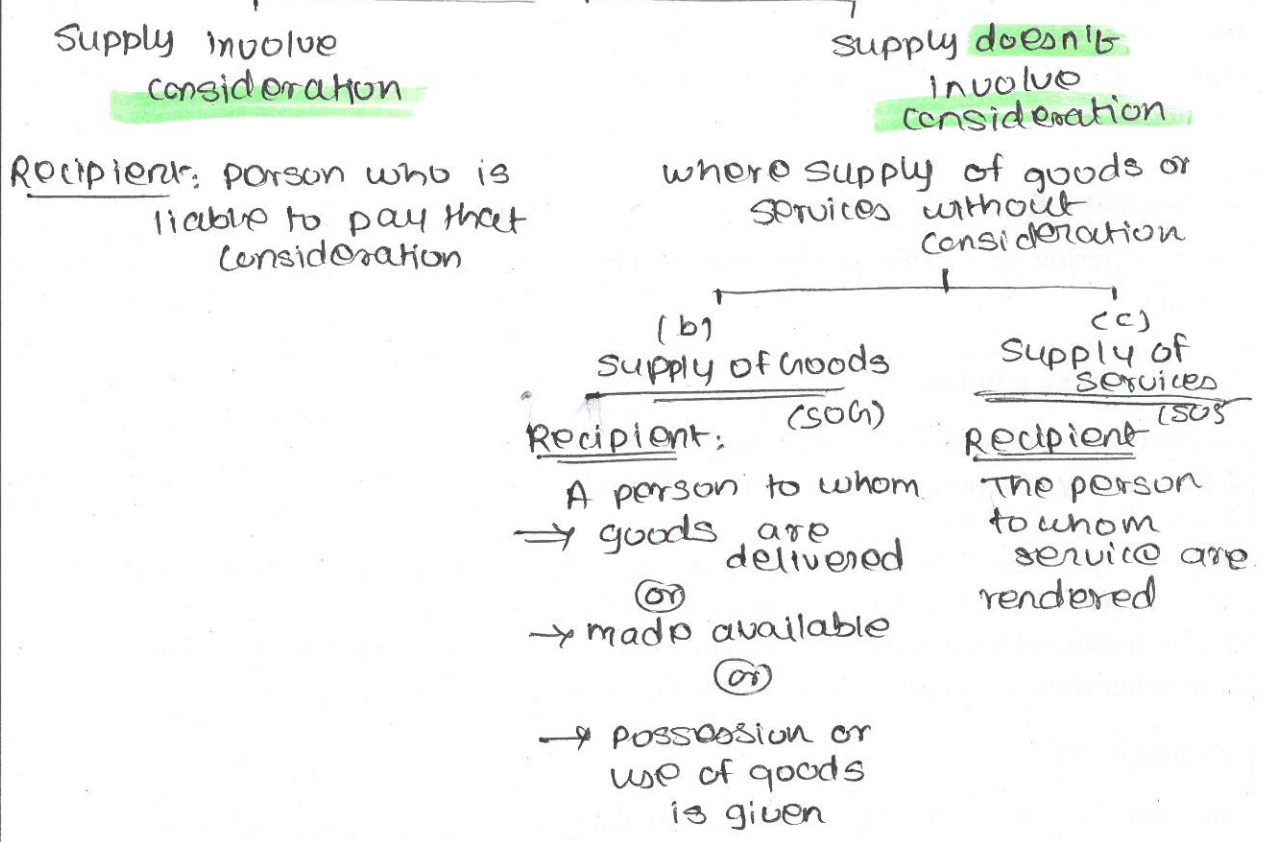 Supply involve
consideration
Recipient: person who is
liable to pay that
consideration
Supply doesn't
involve
consideration
where supply of goods or
services without
consideration
(b)
Supply of Goods
(SOG)
Recipient:
A person to whom
⇒ goods are
delivered
or
→ made available
or
→ possession or
use of goods
is given
(c)
Supply of
services
(SOS
Recipient
The person
to whom
service are
rendered